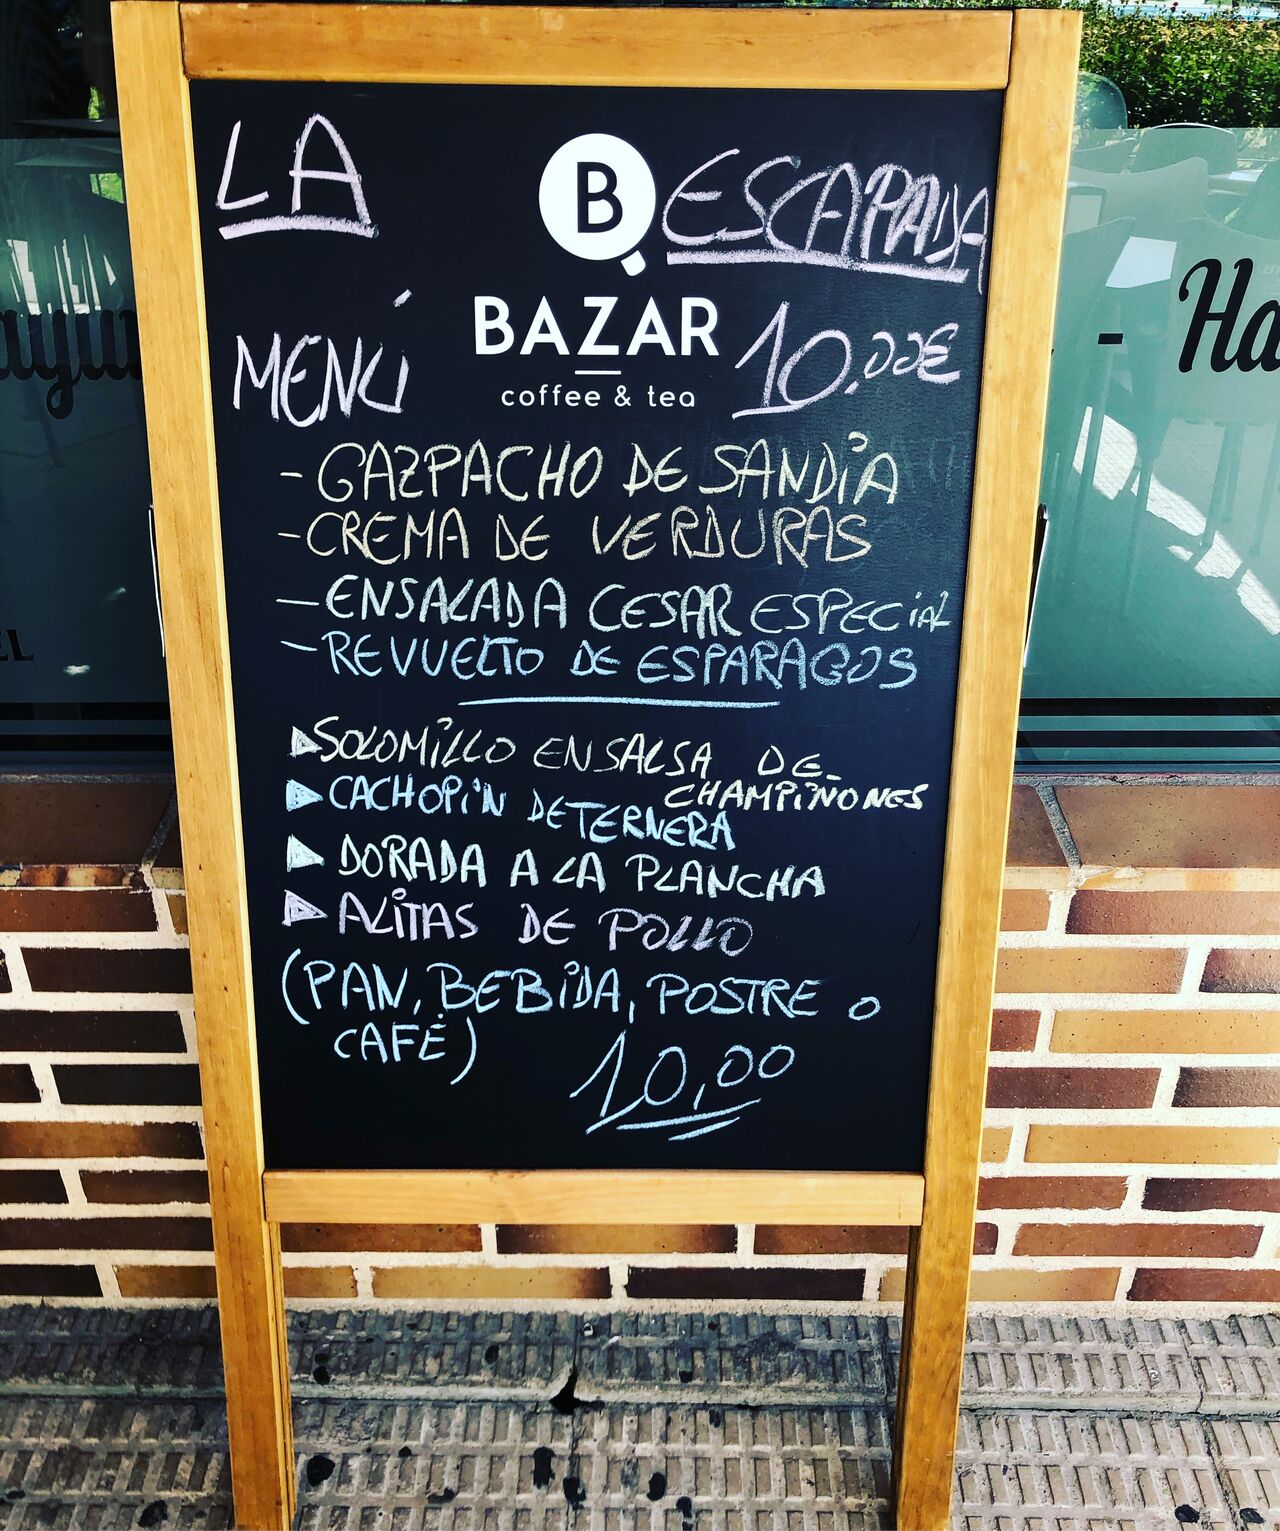 LA B ESCAPADA
BAZAR
coffee & tea
MENÚ 10,00€
- GAZPACHO DE SANDÍA
- CREMA DE VERDURAS
- ENSALADA CESAR ESPECIAL
- REVUELTO DE ESPARAGOS
▶ SOLOMILLO EN SALSA DE
CHAMPIÑONES
▶ CACHOPÍN DE TERNERA
▶ DORADA A LA PLANCHA
▶ ALITAS DE POLLO
(PAN, BEBIDA, POSTRE O
CAFÉ)
10,00
- Ha